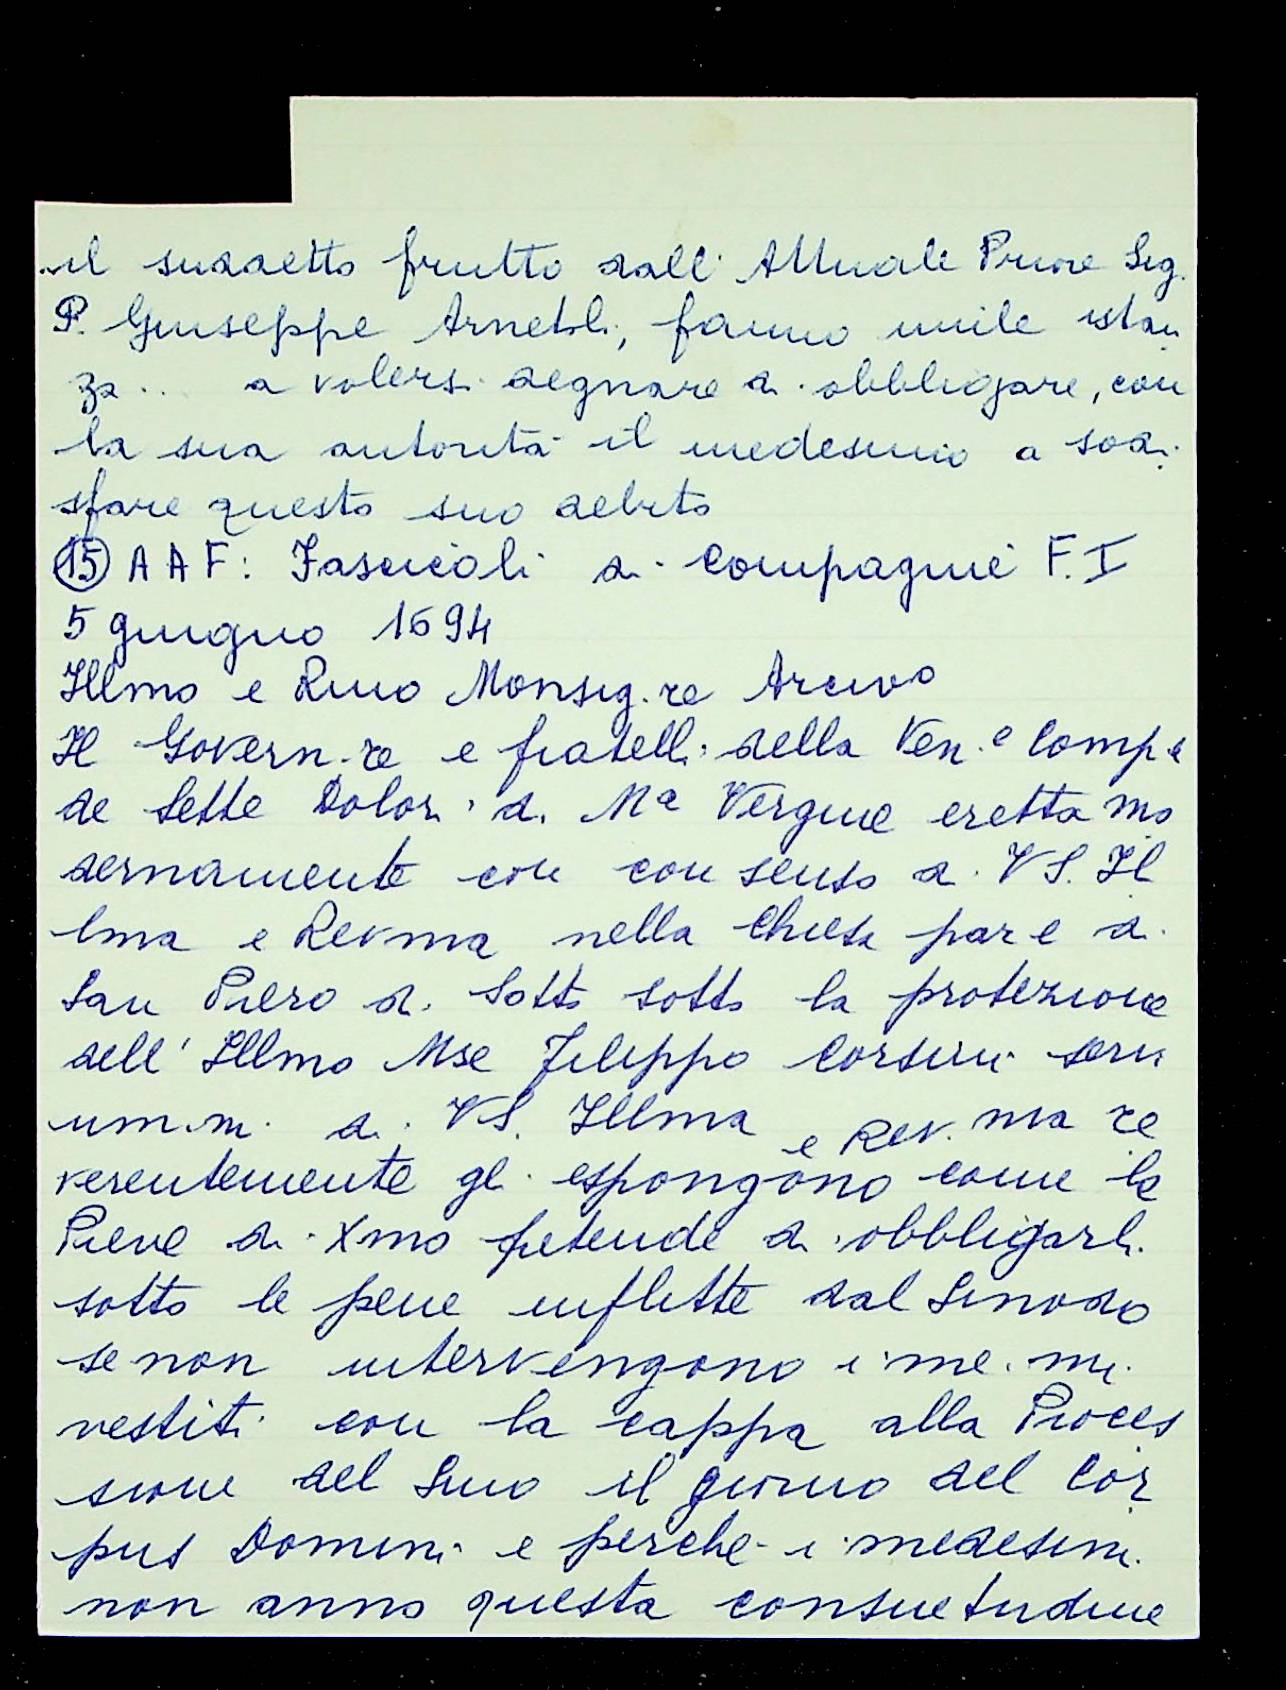 ..il suddetto frutto dall' Attuale Priore Sig.
P. Giuseppe Arnetoli, fanno umile istan
za... a volersi degnare di obbligare, con
la sua autorità il medesimo a sodi
sfare questo suo debito
(15) A A F: Fascicoli di Compagnie F. I
5 giugno 1694
Illmo e Rmo Monsig.re Arcivo
Il Govern.re e fratelli della Ven.e Comp.a
de Sette Dolori di Ma Vergine eretta mo
dernamente con consenso di VS. Il
lma e Revma nella Chiesa par e di
San Piero di Sotto sotto la protezione
dell' Illmo Mse Filippo Corsini servi
um.mi di VS. Illma e Rev.ma re
verentemente gli espongono come la
Pieve di Xmo pretende di obbligarli
sotto le pene inflitte dal Sinodo
se non intervengono i me.mi
vestiti con la cappa alla Proces
sione del Smo il giorno del Cor
pus Domini e perche i medesimi
non anno questa consuetudine